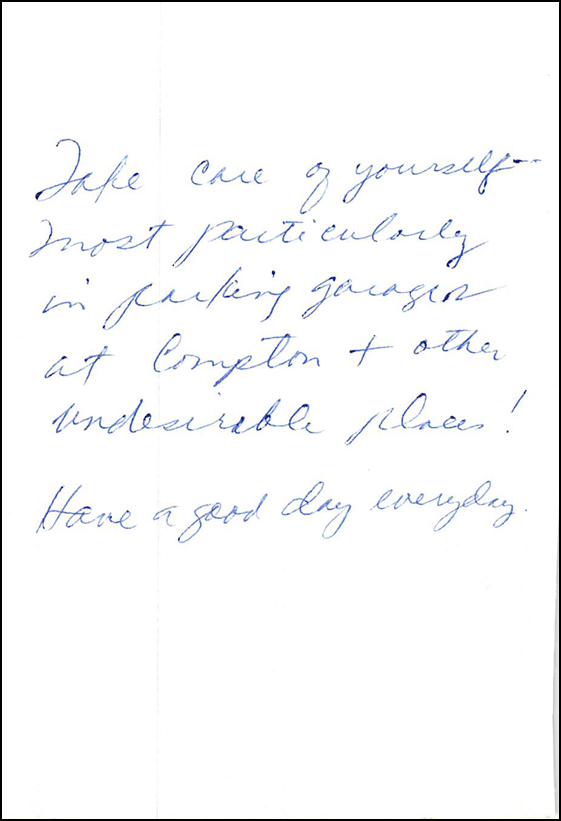 Take care of yourself--
most particularly
in parking garages
at Compton + other
undesirable places!
Have a good day everyday.